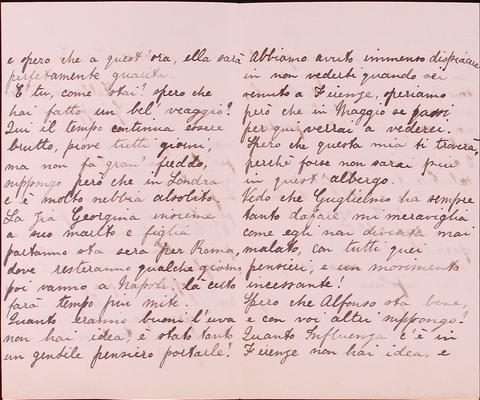 e spero che a quest'ora, ella sarà
perfetamente guarita.
E tu, come stai? spero che
hai fatto un bel viaggio?
Qui il tempo continua essere
brutto, piove tutti giorni,
ma non fa gran freddo,
suppongo però che in Londra
c'è molto nebbia
La Zia Georgina insieme
a suo marito e figlia
partanno sta sera per Roma,
dove resteranno qualche giorno
poi vanno a Napoli, là certo
farà tempo più mite.
Quanto eranno buoni l'uva
non hai idea, è stato tanto
un gentile pensiero portarle!
Abbiamo avuto immenso dispiacere
in non vederti quando sei
venuto a Firenze, speriamo
però che in Maggio se passi
per qui verrai a vederci.
Spero che questa mia ti troverà,
perchè forse non sarai più
in quest'albergo.
Vedo che Guglielmo ha sempre
tanto dafare. mi meraviglia
come egli non diventa mai
malato, con tutti quei
pensieri, e un movimento
incessante!
Spero che Alfonso sta bene,
e con voi altri suppongo?
Quanto Influenza c'è in
Firenze non hai idea, e